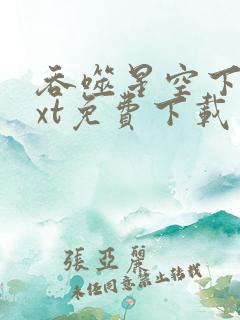 吞噬星空下
xt免費下載
張亞麗
未经同意禁止转载